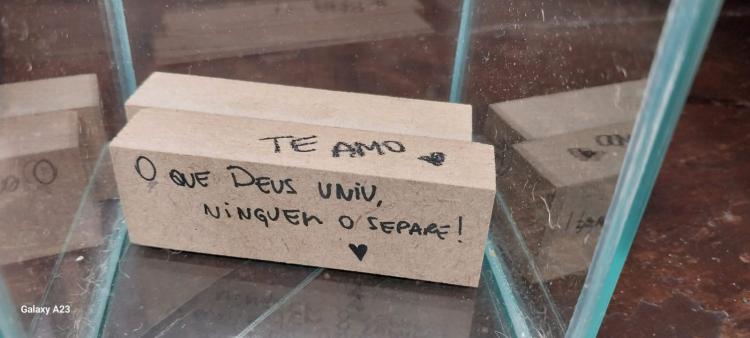 TE AMO
O QUE DEUS UNIU,
NINGUEM O SEPARE!
Galaxy A23